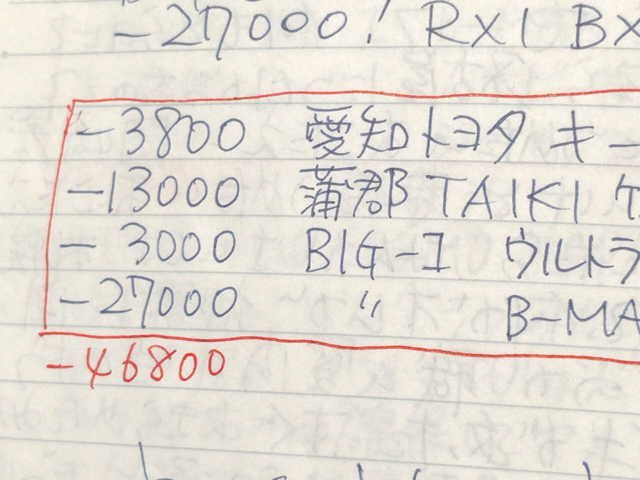 -27000! RX1 BX
-3800 愛知トヨタ キー
-13000 蒲郡 TAIKI ケ
-3000 BIG-I ウルトラ
-27000 〃 B-MA
-46800